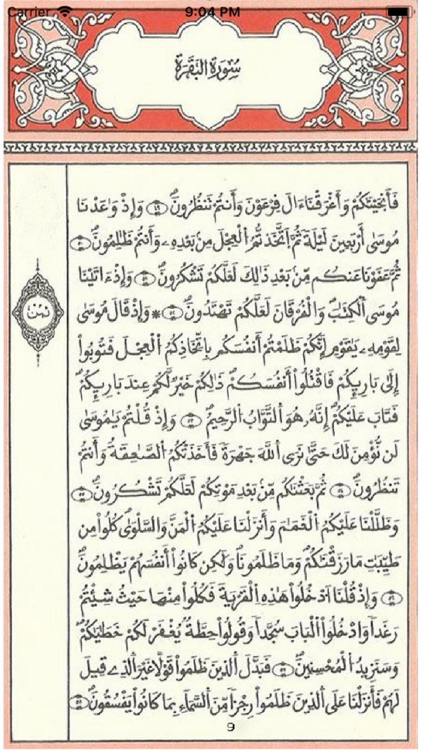 Carrier 9:04 PM
سُورَةُ الْبَقَرَةِ
فَأَنجَيْنَٰكُمْ وَأَغْرَقْنَا ءَالَ فِرْعَوْنَ وَأَنتُمْ تَنظُرُونَۖ ۝ وَإِذْ وَٰعَدْنَا
مُوسَىٰ أَرْبَعِينَ لَيْلَةً ثُمَّ اَتَّخَذتُّمُ الْعِجْلَ مِنۢ بَعْدِهِۦ وَأَنتُمْ ظَٰلِمُونَۖ ۝
ثُمَّ عَفَوْنَا عَنكُم مِّنۢ بَعْدِ ذَٰلِكَ لَعَلَّكُمْ تَشْكُرُونَۖ ۝ وَإِذَ اٰتَيْنَا
مُوسَى اَلْكِتَٰبَ وَالْفُرْقَانَ لَعَلَّكُمْ تَهْتَدُونَۖ ۝ * وَإِذْ قَالَ مُوسَىٰ
لِقَوْمِهِۦ يَٰقَوْمِ إِنَّكُمْ ظَلَمْتُمُۥٓ أَنفُسَكُم بِاتِّخَاذِكُمُ الْعِجْلَ فَتُوبُوٓاْ
إِلَىٰ بَارِئِكُمْ فَاقْتُلُوٓاْ أَنفُسَكُمْۖ ذَٰلِكُمْ خَيْرٌ لَّكُمْ عِندَ بَارِئِكُمْۖ
فَتَابَ عَلَيْكُمُۥٓ إِنَّهُۥ هُوَ اَلتَّوَّابُ الرَّحِيمُۖ ۝ وَإِذْ قُلْتُمْ يَٰمُوسَىٰ
لَن نُّؤْمِنَ لَكَ حَتَّىٰ نَرَى اَللَّهَ جَهْرَةً فَأَخَذَتْكُمُ الصَّٰعِقَةُ وَأَنتُمْ
تَنظُرُونَۖ ۝ ثُمَّ بَعَثْنَٰكُم مِّنۢ بَعْدِ مَوْتِكُمْ لَعَلَّكُمْ تَشْكُرُونَۖ ۝
وَظَلَّلْنَا عَلَيْكُمُ الْغَمَٰمَ وَأَنزَلْنَا عَلَيْكُمُ الْمَنَّ وَالسَّلْوَىٰۖ كُلُواْ مِن
طَيِّبَٰتِ مَا رَزَقْنَٰكُمْۖ وَمَا ظَلَمُونَاۖ وَلَٰكِن كَانُوٓاْ أَنفُسَهُمْ يَظْلِمُونَۖ
۝ وَإِذْ قُلْنَا اَدْخُلُواْ هَٰذِهِ الْقَرْيَةَ فَكُلُواْ مِنْهَا حَيْثُ شِئْتُمْ
رَغَداً وَادْخُلُواْ الْبَابَ سُجَّداً وَقُولُواْ حِطَّةٌ يُغْفَرْ لَكُمْ خَطَٰيَٰكُمْۖ
وَسَنَزِيدُ الْمُحْسِنِينَۖ ۝ فَبَدَّلَ الذِينَ ظَلَمُواْ قَوْلاً غَيْرَ اَلذِے قِيلَ
لَهُمْ فَأَنزَلْنَا عَلَى اَلذِينَ ظَلَمُواْ رِجْزاً مِّنَ السَّمَآءِ بِمَا كَانُواْ يَفْسُقُونَۖ ۝
ثمن
9